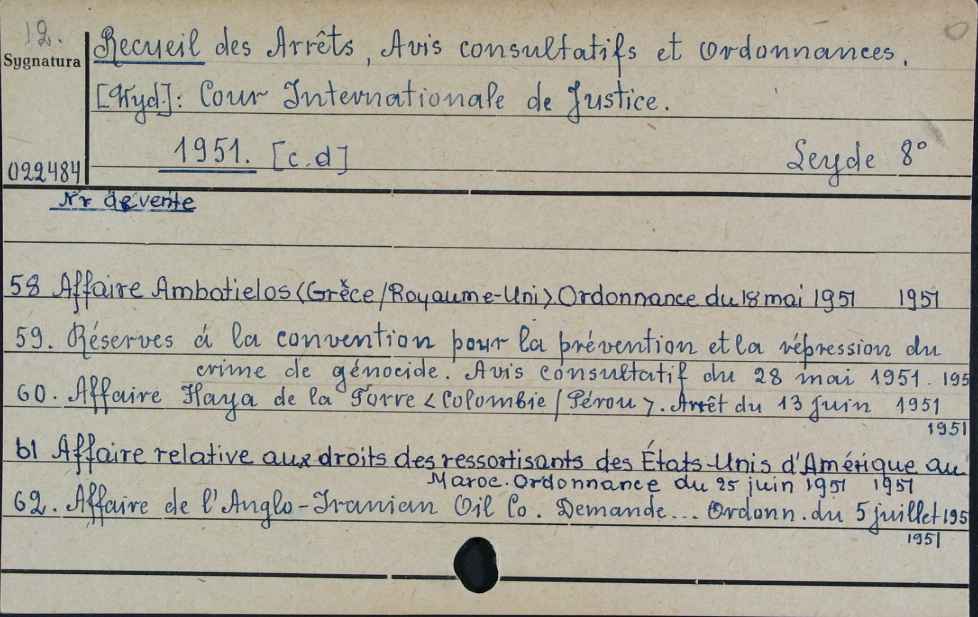 12.
Sygnatura
022484
Recueil des Arrêts, Avis consultatifs et Ordonnances.
[Wyd.]: Cour Internationale de Justice.
1951. [c.d] Leyde 8°
Nr de vente
58 Affaire Ambatielos <Grèce/Royaume-Uni> Ordonnance du 18 mai 1951 1951
59. Réserves á la convention pour la prévention et la répression du
crime de génocide. Avis consultatif du 28 mai 1951. 195
60. Affaire Haya de la Torre <Colombie/Pérou>. Arrêt du 13 juin 1951
1951
61 Affaire relative aux droits des ressortisants des États-Unis d'Amérique au
Maroc. Ordonnance du 25 juin 1951 1951
62. Affaire de l'Anglo-Iranian Oil Co. Demande... Ordonn. du 5 juillet 195
1951